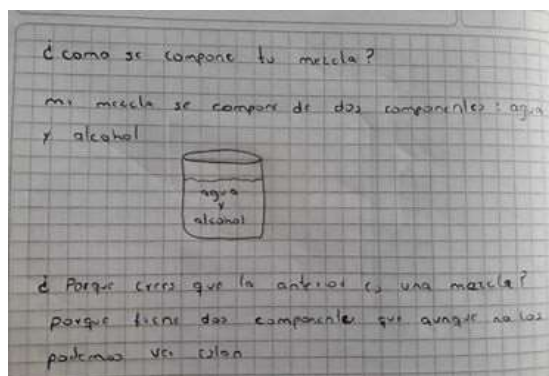 ¿como se compone tu mezcla?
mi mezcla se compone de dos componentes: agua
y alcohol
agua
y
alcohol
¿Porque crees que la anterior es una mezcla?
porque tiene dos componente que aunque no los
podemos ver estan